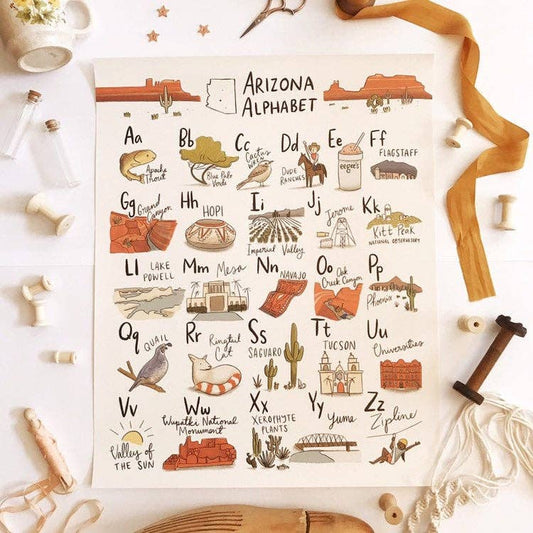 ARIZONA
ALPHABET
Aa
Apache
Trout
Bb
Blue Palo
Verde
Cc
Cactus
Wren
Dd
DUDE
RANCHES
Ee
eegee's
Ff
FLAGSTAFF
Gg
Grand
Canyon
Hh
HOPI
Ii
Imperial Valley
Jj
Jerome
Kk
Kitt Peak
NATIONAL OBSERVATORY
Ll
LAKE
POWELL
Mm
Mesa
Nn
NAVAJO
Oo
Oak
Creek Canyon
Pp
Phoenix
Qq
QUAIL
Rr
Ringtail
Cat
Ss
SAGUARO
Tt
TUCSON
Uu
Universities
Vv
Valley of
THE SUN
Ww
Wupatki National
Monument
Xx
XEROPHYTE
PLANTS
Yy
Yuma
Zz
Zipline